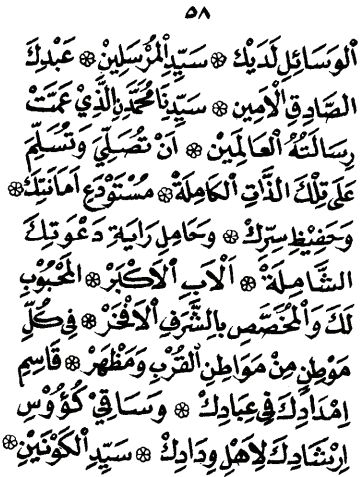 ٥٨
الْوَسَائِلِ لَدَيْكَ ❁ سَيِّدِ الْمُرْسَلِيْنَ ❁ عَبْدِكَ
الصَّادِقِ الْاَمِيْنِ ❁ سَيِّدِنَا مُحَمَّدِنِ الَّذِيْ عَمَّتْ
رِسَالَتُهُ الْعَالَمِيْنَ ❁ اَنْ تُصَلِّيَ وَتُسَلِّمَ
عَلٰى تِلْكَ الذَّاتِ الْكَامِلَةِ ❁ مُسْتَوْدَعِ اَمَانَتِكَ ❁
وَحَفِيْظِ سِرِّكَ ❁ وَحَامِلِ رَايَةِ دَعْوَتِكَ
الشَّامِلَةِ ❁ اَلْاَبِ الْاَكْبَرِ ❁ اَلْمَحْبُوْبِ
لَكَ وَالْمُخَصَّصِ بِالشَّرَفِ الْاَفْخَرِ ❁ فِيْ كُلِّ
مَوْطِنٍ مِنْ مَوَاطِنِ الْقُرْبِ وَمَظْهَرٍ ❁ قَاسِمِ
اِمْدَادِكَ فِيْ عِبَادِكَ ❁ وَسَاقِيْ كُؤُوْسِ
اِرْشَادِكَ لِاَهْلِ وِدَادِكَ ❁ سَيِّدِ الْكَوْنَيْنِ ❁